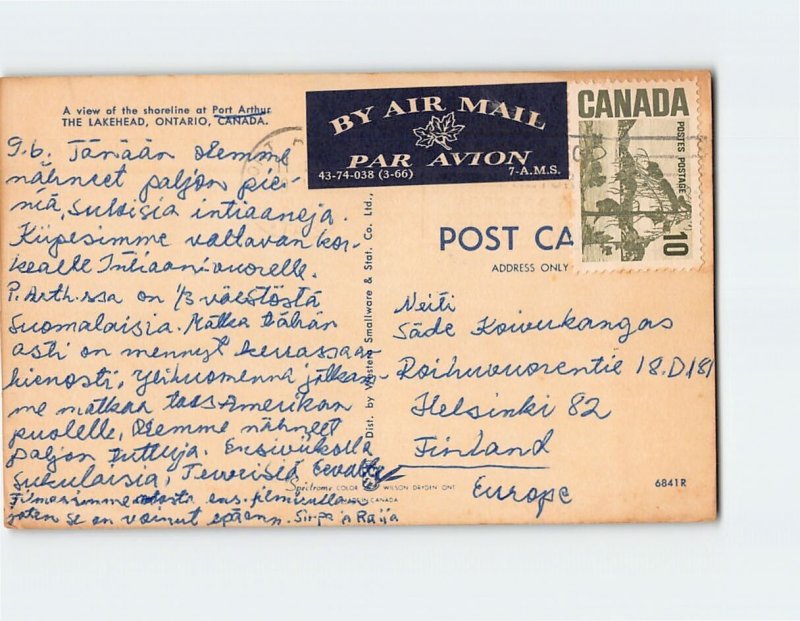 A view of the shoreline at Port Arthur
THE LAKEHEAD, ONTARIO, CANADA.
BY AIR MAIL
PAR AVION
43-74-038 (3-66)
7-A.M.S.
CANADA
POSTES POSTAGE
10
POST CA
ADDRESS ONLY
9.6. Tänään olemme
nähneet paljon pie-
niä, suloisia intiaaneja.
Kiipesimme valtavan kor-
kealle Intiaanivuorelle.
P. Arth.ssa on 1/3 väestöstä
suomalaisia. Matka tähän
asti on mennyt kerrassaan
hienosti, ylihuomenna jatkam-
me matkaa taas Amerikan
puolelle, Olemme nähneet
paljon tuttuja. Ensiviikolla
sukulaisia, Terveisiä
Filmasimme ens. filmirulla
joten se on voinut epäonn. Sirpa ja Raija
Dist. by Western Smallware & Stat. Co. Ltd.,
Neiti
Säde Koivukangas
Roihuvuorentie 18.D181
Helsinki 82
Finland
Europe
Spectrome COLOR
WILSON DRYDEN ONT
IN CANADA
6841R